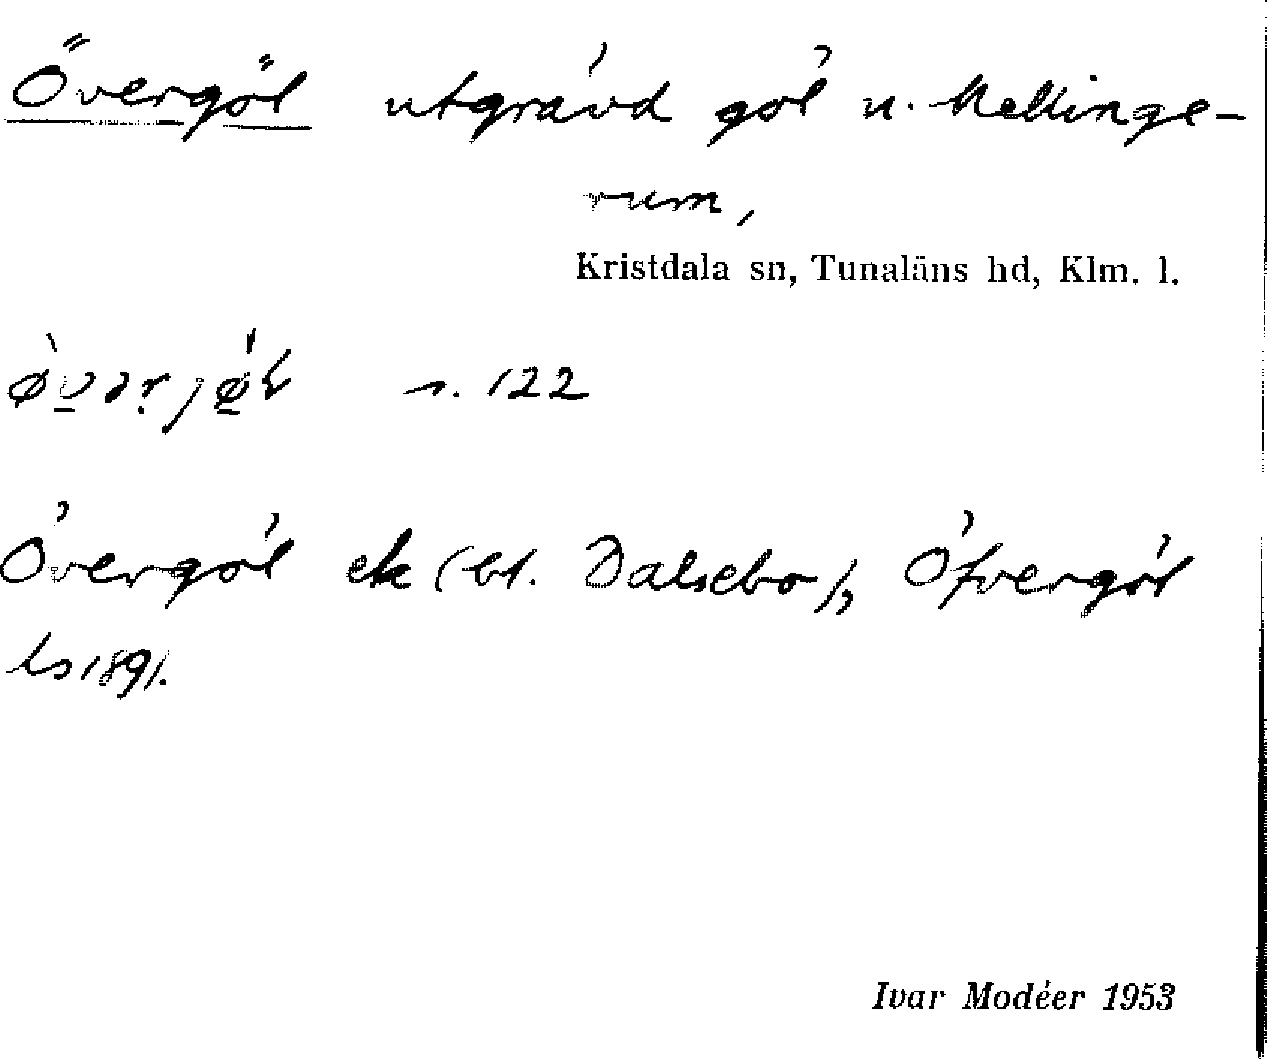 Övergöl utgrävd göl u. Mellinge-
rum,
Kristdala sn, Tunaläns hd, Klm. l.
s. 122
Övergöl ek (bl. Dalsebo), Öfvergöl
ls 1891.
Ivar Modéer 1953